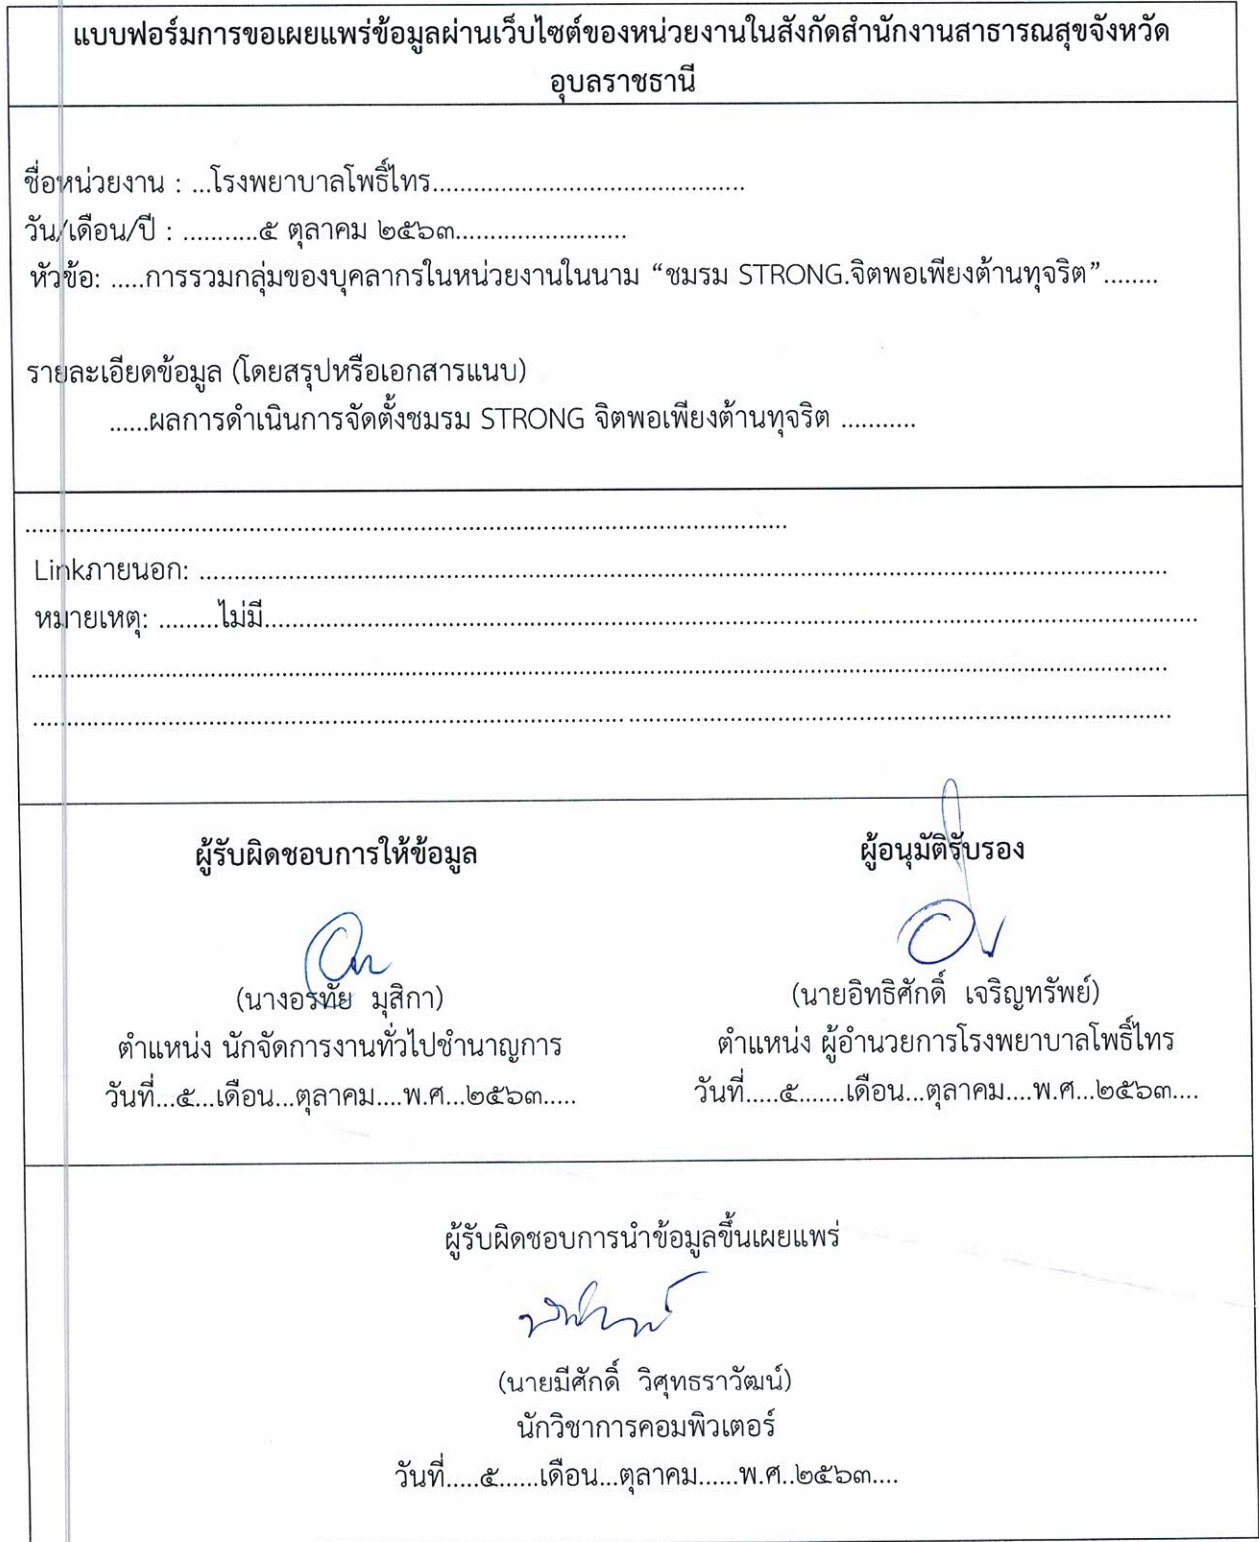 แบบฟอร์มการขอเผยแพร่ข้อมูลผ่านเว็บไซต์ของหน่วยงานในสังกัดสำนักงานสาธารณสุขจังหวัด
อุบลราชธานี
ชื่อหน่วยงาน : ...โรงพยาบาลโพธิ์ไทร..............................................
วัน/เดือน/ปี : ...........๕ ตุลาคม ๒๕๖๓.........................
หัวข้อ: .....การรวมกลุ่มของบุคลากรในหน่วยงานในนาม “ชมรม STRONG.จิตพอเพียงต้านทุจริต”........
รายละเอียดข้อมูล (โดยสรุปหรือเอกสารแนบ)
......ผลการดำเนินการจัดตั้งชมรม STRONG จิตพอเพียงต้านทุจริต ...........
................................................................................................................
Linkภายนอก: ................................................................................................................................................
หมายเหตุ: .........ไม่มี..........................................................................................................................................
........................................................................................................................................................................
........................................................................................................................................................................
ผู้รับผิดชอบการให้ข้อมูล
ผู้อนุมัติรับรอง
(นางอรทัย มุสิกา)
(นายอิทธิศักดิ์ เจริญทรัพย์)
ตำแหน่ง นักจัดการงานทั่วไปชำนาญการ
ตำแหน่ง ผู้อำนวยการโรงพยาบาลโพธิ์ไทร
วันที่...๕...เดือน...ตุลาคม....พ.ศ...๒๕๖๓.....
วันที่.....๕.......เดือน...ตุลาคม....พ.ศ...๒๕๖๓....
ผู้รับผิดชอบการนำข้อมูลขึ้นเผยแพร่
(นายมีศักดิ์ วิศุทธราวัฒน์)
นักวิชาการคอมพิวเตอร์
วันที่.....๕......เดือน...ตุลาคม......พ.ศ..๒๕๖๓....